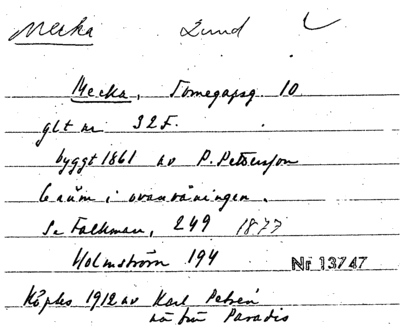 Mecka Lund
Mecka, Tomegapsg 10
glt nr 32F.
byggt 1861 av P. Pettersson
6 rum i ovanvåningen.
Se Falkman, 249 1877
Holmström 194
Nr 13747
Köptes 1912 av Karl Petrén
på Paradis